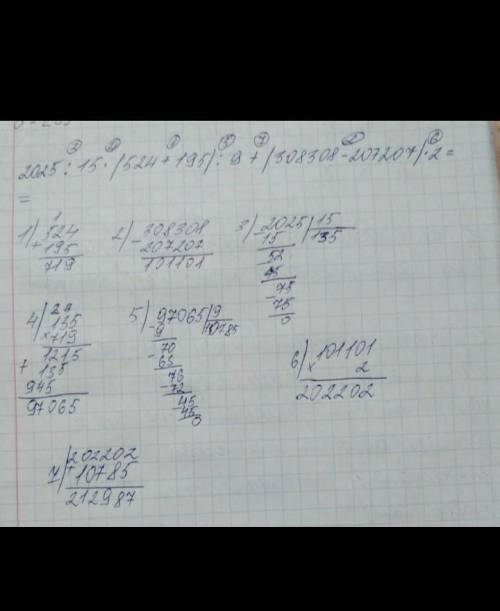 2025 : 15 · (524 + 195) : 9 + (308308 - 207207) · 2 =
=
1) 524
+ 195
719
2) - 308308
207207
101101
3) - 2025 | 15
15 | 135
52
45
- 75
75
0
4) 29
135
× 719
1215
+ 135
945
97065
5) - 97065 | 9
9 | 10785
- 70
63
76
- 72
45
45
0
6) 101101
× 2
202202
7) 202202
+ 10785
212987